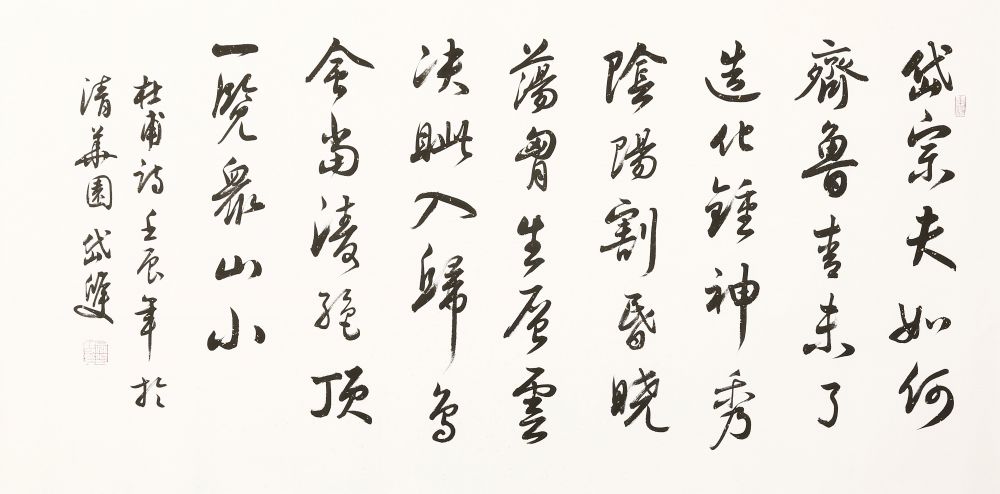 岱宗夫如何
齊魯青未了
造化鍾神秀
陰陽割昏曉
蕩胷生层雲
决眦入歸鸟
會當凌绝頂
一覽衆山小
杜甫诗壬辰年於
清華園岱